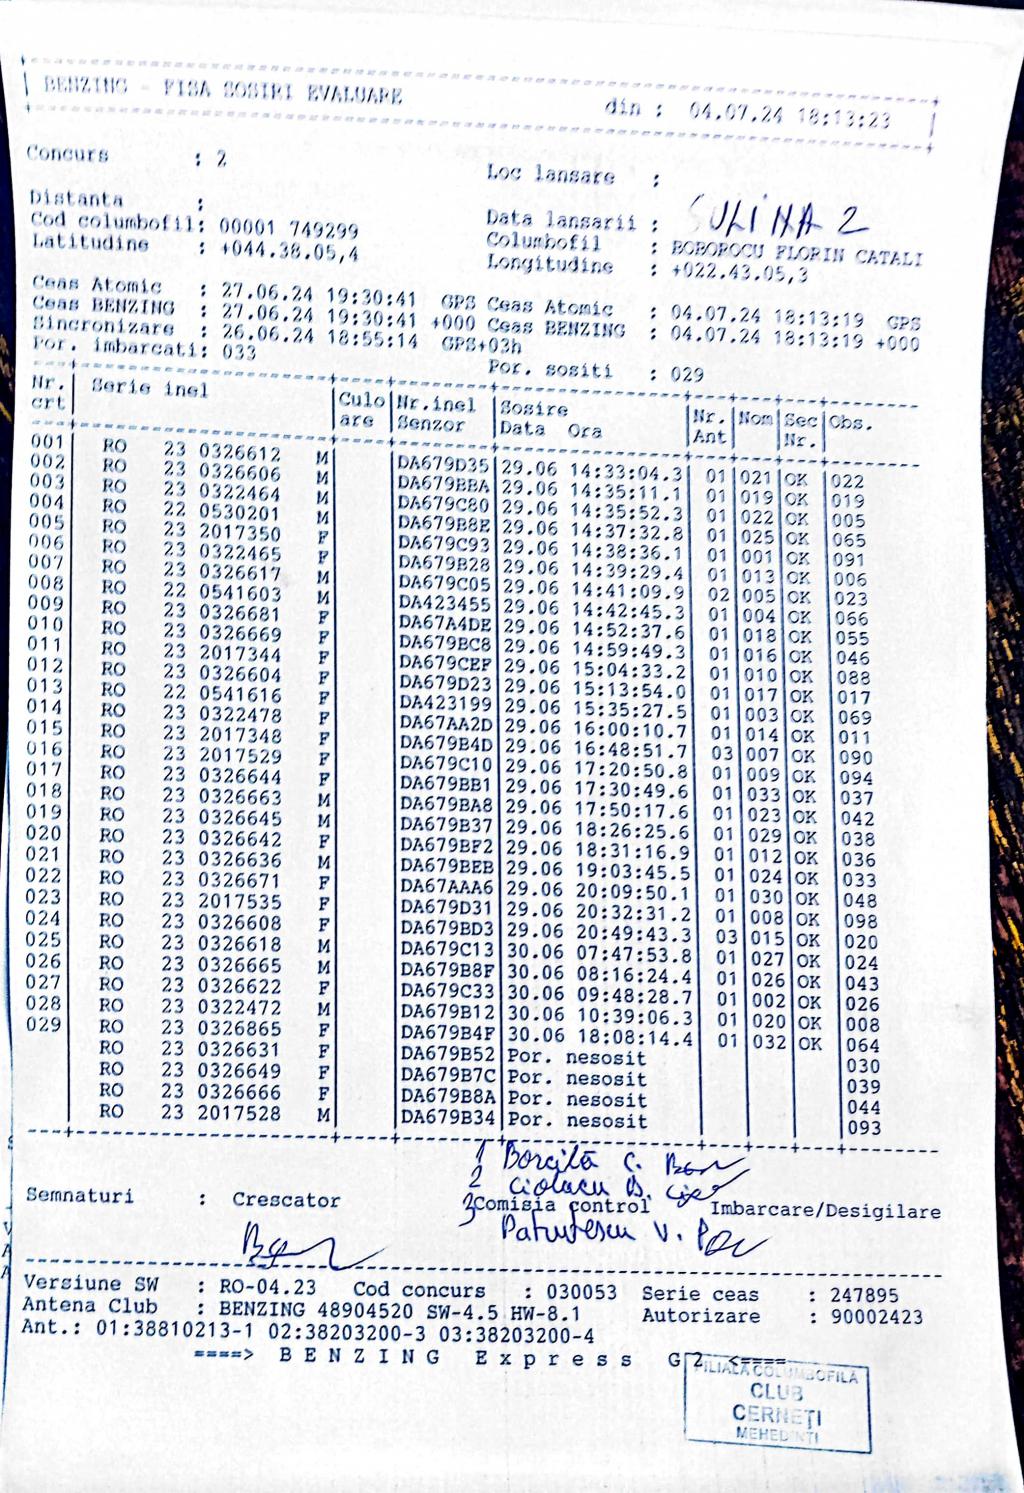 BENZING - FISA SOSIRI EVALUARE din : 04.07.24 18:13:23
Concurs : 2 Loc lansare :
SULINA 2
Distanta : Data lansarii :
Cod columbofil: 00001 749299 Columbofil : BOBOROCU FLORIN CATALI
Latitudine : +044.38.05,4 Longitudine : +022.43.05,3
Ceas Atomic : 27.06.24 19:30:41 GPS Ceas Atomic : 04.07.24 18:13:19 GPS
Ceas BENZING : 27.06.24 19:30:41 +000 Ceas BENZING : 04.07.24 18:13:19 +000
Sincronizare : 26.06.24 18:55:14 GPS+03h
Por. imbarcati: 033 Por. sositi : 029
Nr. Serie inel Culo Nr.inel Sosire Nr. Nom Sec Obs.
crt are Senzor Data Ora Ant Nr.
001 RO 23 0326612 M DA679D35 29.06 14:33:04.3 01 021 OK 022
002 RO 23 0326606 M DA679BBA 29.06 14:35:11.1 01 019 OK 019
003 RO 23 0322464 M DA679C80 29.06 14:35:52.3 01 022 OK 005
004 RO 22 0530201 M DA679B8E 29.06 14:37:32.8 01 025 OK 065
005 RO 23 2017350 F DA679C93 29.06 14:38:36.1 01 001 OK 091
006 RO 23 0322465 F DA679B28 29.06 14:39:29.4 01 013 OK 006
007 RO 23 0326617 M DA679C05 29.06 14:41:09.9 02 005 OK 023
008 RO 22 0541603 M DA423455 29.06 14:42:45.3 01 004 OK 066
009 RO 23 0326681 F DA67A4DE 29.06 14:52:37.6 01 018 OK 055
010 RO 23 0326669 F DA679BC8 29.06 14:59:49.3 01 016 OK 046
011 RO 23 2017344 F DA679CEF 29.06 15:04:33.2 01 010 OK 088
012 RO 23 0326604 F DA679D23 29.06 15:13:54.0 01 017 OK 017
013 RO 22 0541616 F DA423199 29.06 15:35:27.5 01 003 OK 069
014 RO 23 0322478 F DA67AA2D 29.06 16:00:10.7 01 014 OK 011
015 RO 23 2017348 F DA679B4D 29.06 16:48:51.7 03 007 OK 090
016 RO 23 2017529 F DA679C10 29.06 17:20:50.8 01 009 OK 094
017 RO 23 0326644 F DA679BB1 29.06 17:30:49.6 01 033 OK 037
018 RO 23 0326663 M DA679BA8 29.06 17:50:17.6 01 023 OK 042
019 RO 23 0326645 M DA679B37 29.06 18:26:25.6 01 029 OK 038
020 RO 23 0326642 F DA679BF2 29.06 18:31:16.9 01 012 OK 036
021 RO 23 0326636 M DA679BEB 29.06 19:03:45.5 01 024 OK 033
022 RO 23 0326671 F DA67AAA6 29.06 20:09:50.1 01 030 OK 048
023 RO 23 2017535 F DA679D31 29.06 20:32:31.2 01 008 OK 098
024 RO 23 0326608 F DA679BD3 29.06 20:49:43.3 03 015 OK 020
025 RO 23 0326618 M DA679C13 30.06 07:47:53.8 01 027 OK 024
026 RO 23 0326665 M DA679B8F 30.06 08:16:24.4 01 026 OK 043
027 RO 23 0326622 F DA679C33 30.06 09:48:28.7 01 002 OK 026
028 RO 23 0322472 M DA679B12 30.06 10:39:06.3 01 020 OK 008
029 RO 23 0326865 F DA679B4F 30.06 18:08:14.4 01 032 OK 064
RO 23 0326631 F DA679B52 Por. nesosit 030
RO 23 0326649 F DA679B7C Por. nesosit 039
RO 23 0326666 F DA679B8A Por. nesosit 044
RO 23 2017528 M DA679B34 Por. nesosit 093
1 Borcilă C.
2 Ciolacu B.
Semnaturi : Crescator Comisia control Imbarcare/Desigilare
3 Patrutescu V.
Versiune SW : RO-04.23 Cod concurs : 030053 Serie ceas : 247895
Antena Club : BENZING 48904520 SW-4.5 HW-8.1 Autorizare : 90002423
Ant.: 01:38810213-1 02:38203200-3 03:38203200-4
====> B E N Z I N G E x p r e s s G 2 <====
FILIALA COLUMBOFILĂ
CLUB
CERNEȚI
MEHEDINȚI